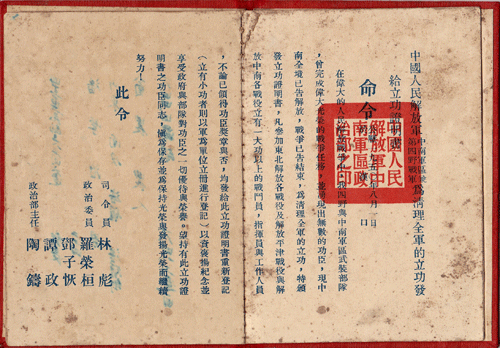 中國人民解放軍中南軍區暨第四野戰軍為清理全軍的立功發
給立功證明
命令
在偉大的人民
四野與中南軍區武裝部隊
，曾完成偉大光榮的戰爭任務，並湧現出無數的功臣。現中
南全境已告解放，戰爭已告結束，為清理全軍的立功，特頒
發立功證明書，凡參加東北解放各戰役及解放平津戰役與解
放中南各戰役立有一大功以上的戰鬥員，指揮員與工作人員
，不論已領得功臣獎章與否，均發給此立功證明書重新登記
（立有小功者則以軍為單位立冊進行登記）以資褒揚紀念並
享受政府與部隊對功臣之一切優待與榮譽。望持有此立功證
明書之功臣同志，慎為保存並為保持光榮與發揚光榮而繼續
努力！
此令
司令員 林彪
政治委員 羅榮桓
鄧子恢
譚政
政治部主任 陶鑄
中國人民
解放軍中
南軍區政
治
印